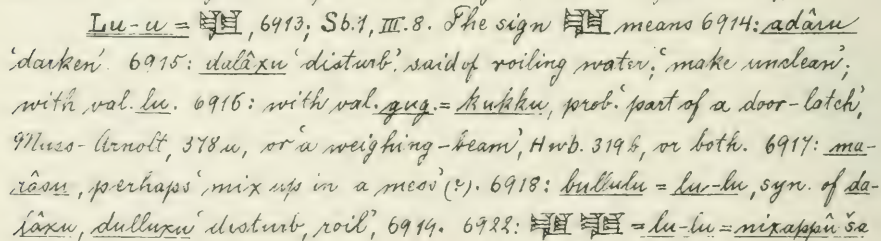 Lu-u = 𒇻𒇻, 6913; Sb. 1, III. 8. The sign 𒇻𒇻 means 6914: adâru
'darken'. 6915: dulâxu 'disturb', said of roiling water; 'make unclean';
with val. lu. 6916: with val. gug = kukku, prob. 'part of a door-latch',
Muss-Arnolt, 378 a, or 'a weighing-beam', Hwb. 319 b, or both. 6917: ma-
râsu, perhaps 'mix up in a mess' (?). 6918: bullulu = lu-lu, syn. of da-
lâxu, dulluxu 'disturb, roil', 6919. 6922: = lu-lu = nixappû ša